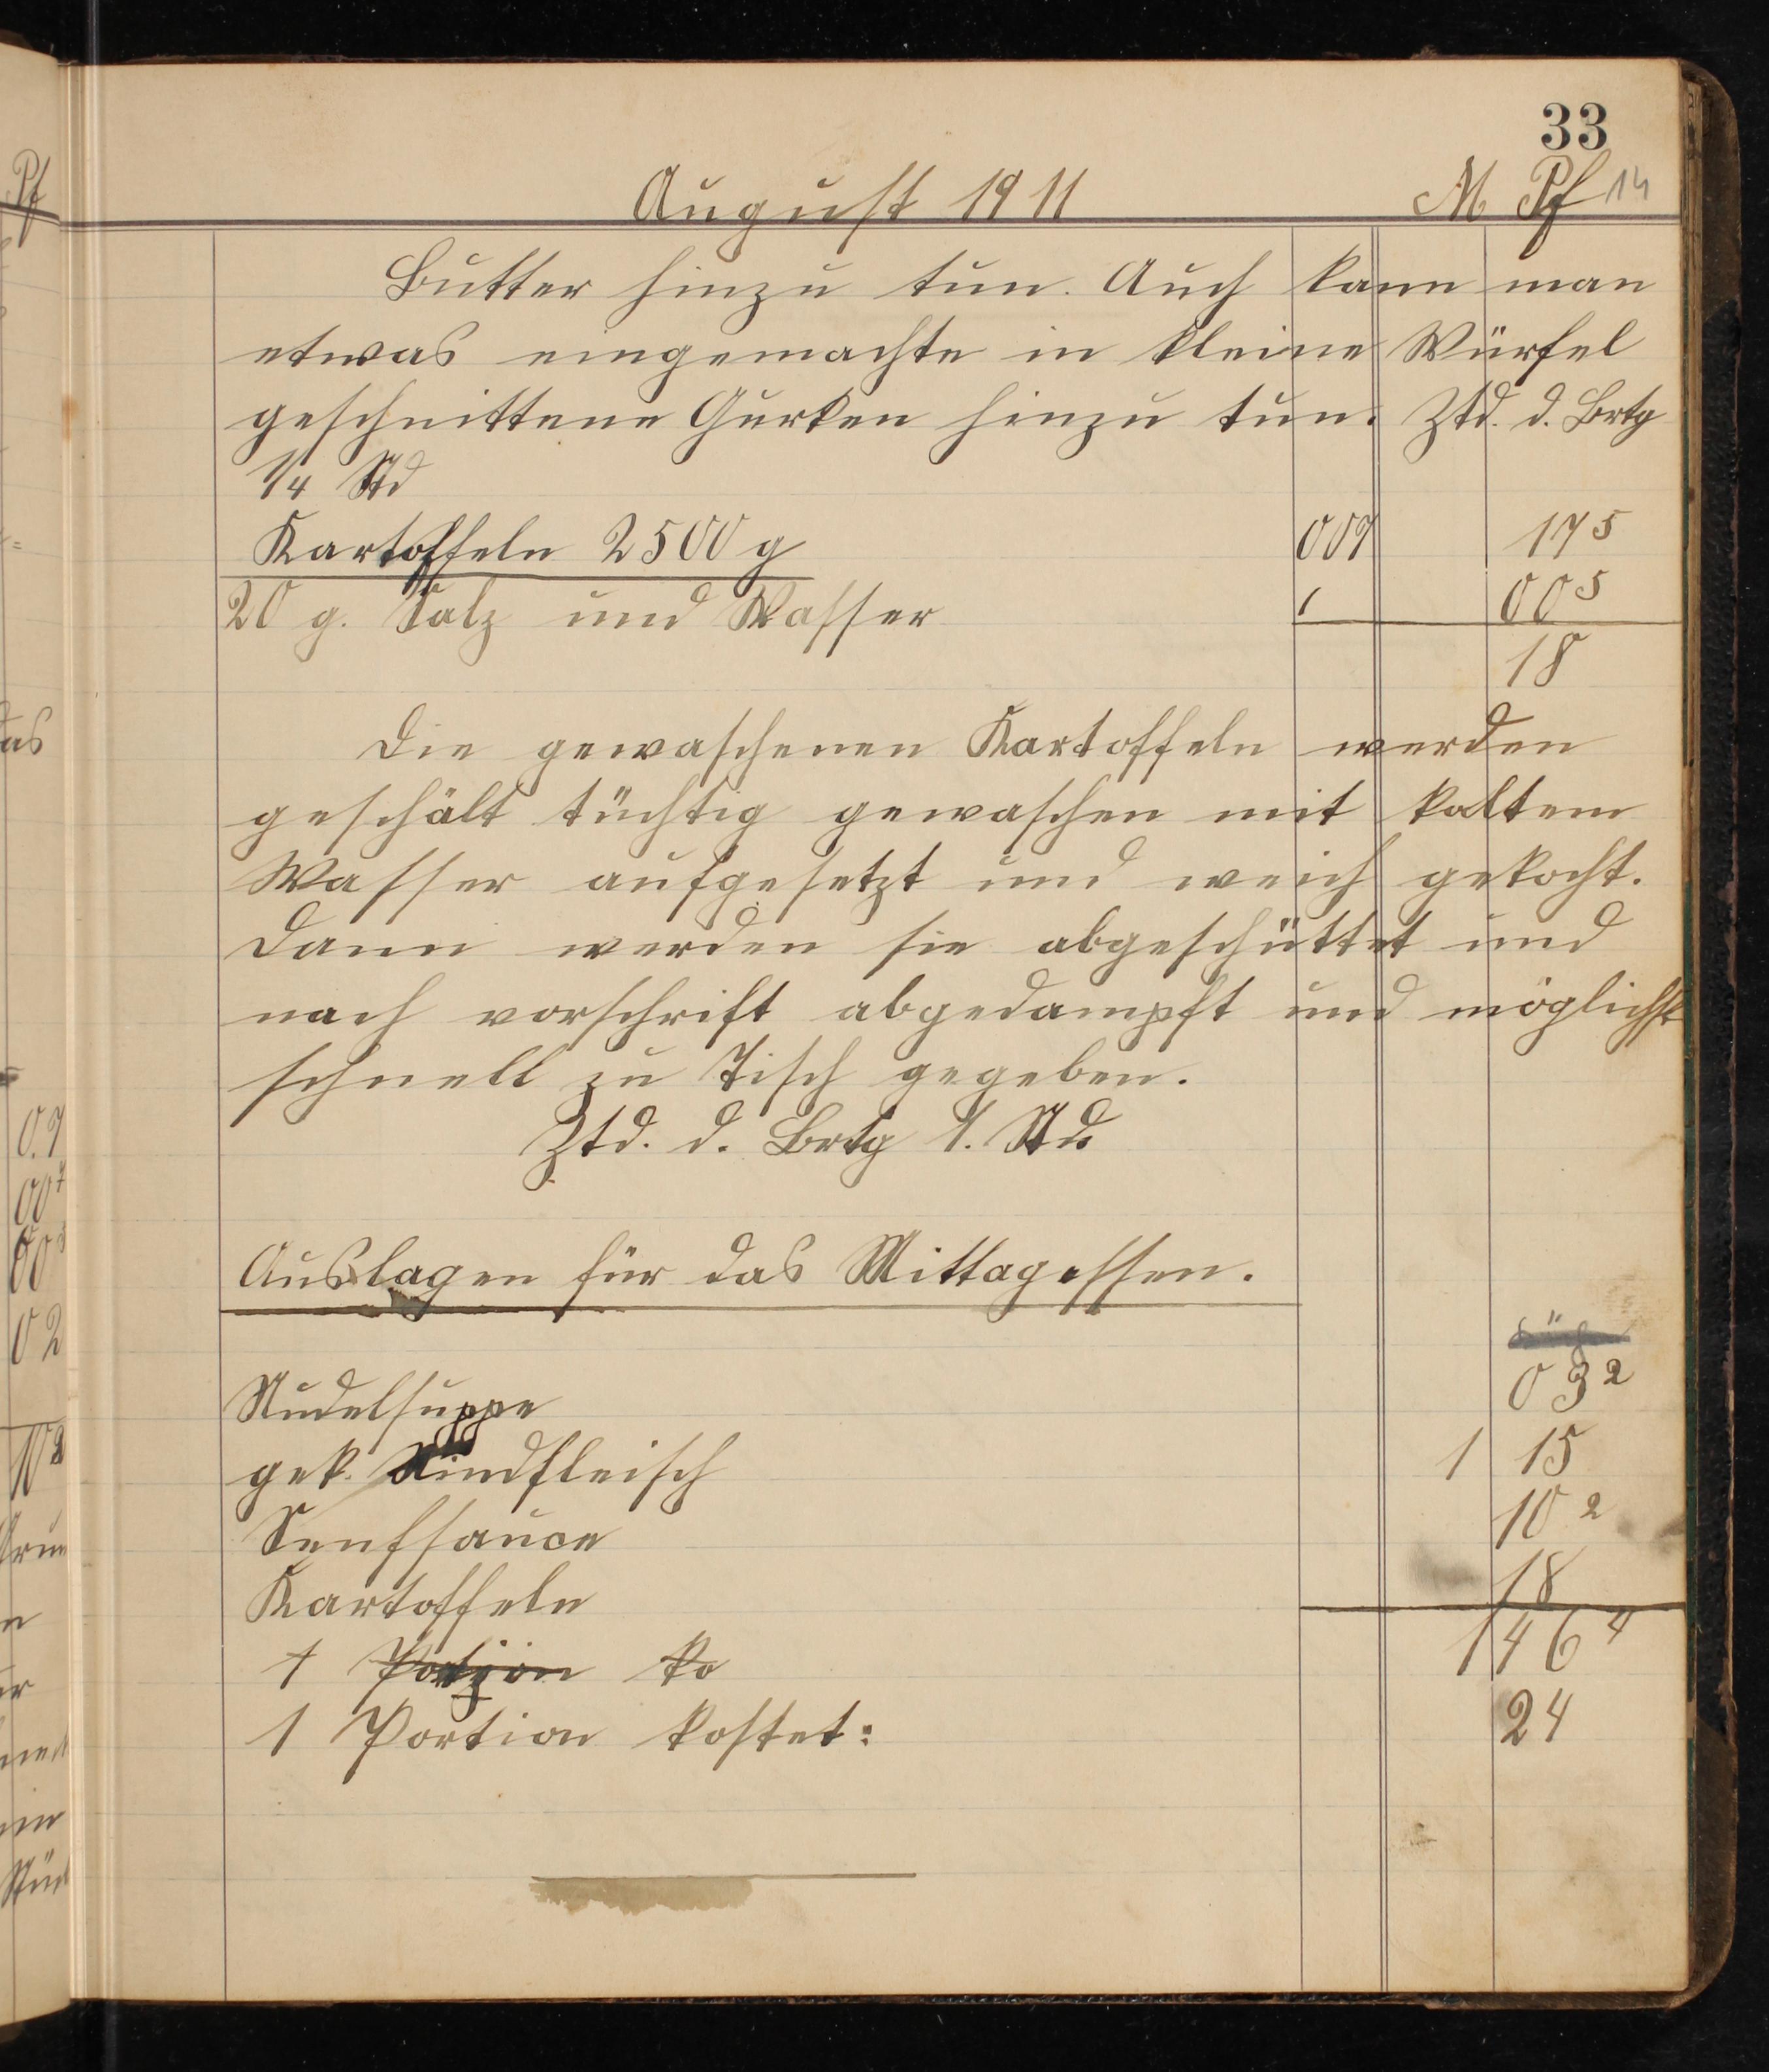 33
August 1911 M Pf 14
Butter hinzu tun. Auch kann man
etwas eingemachte in kleine Würfel
geschnittene Gurken hinzu tun. Ztd. d. Brtg
1/4 Std
Kartoffeln 2500 g 007 17 5
20 g. Salz und Wasser 1 00 5
18
Die gewaschenen Kartoffeln werden
geschält tüchtig gewaschen mit kaltem
Wasser aufgesetzt und weich gekocht.
Dann werden sie abgeschüttet und
nach vorschrift abgedampft und möglichst
schnell zu Tisch gegeben.
Ztd. d. Brtg 1. Std
Auslagen für das Mittagessen.
Nudelsuppe 03 2
gek. Rindfleisch 1 15
Senfsauce 10 2
Kartoffeln 18
1 Portzion ko 1 46 4
1 Portion kostet: 24